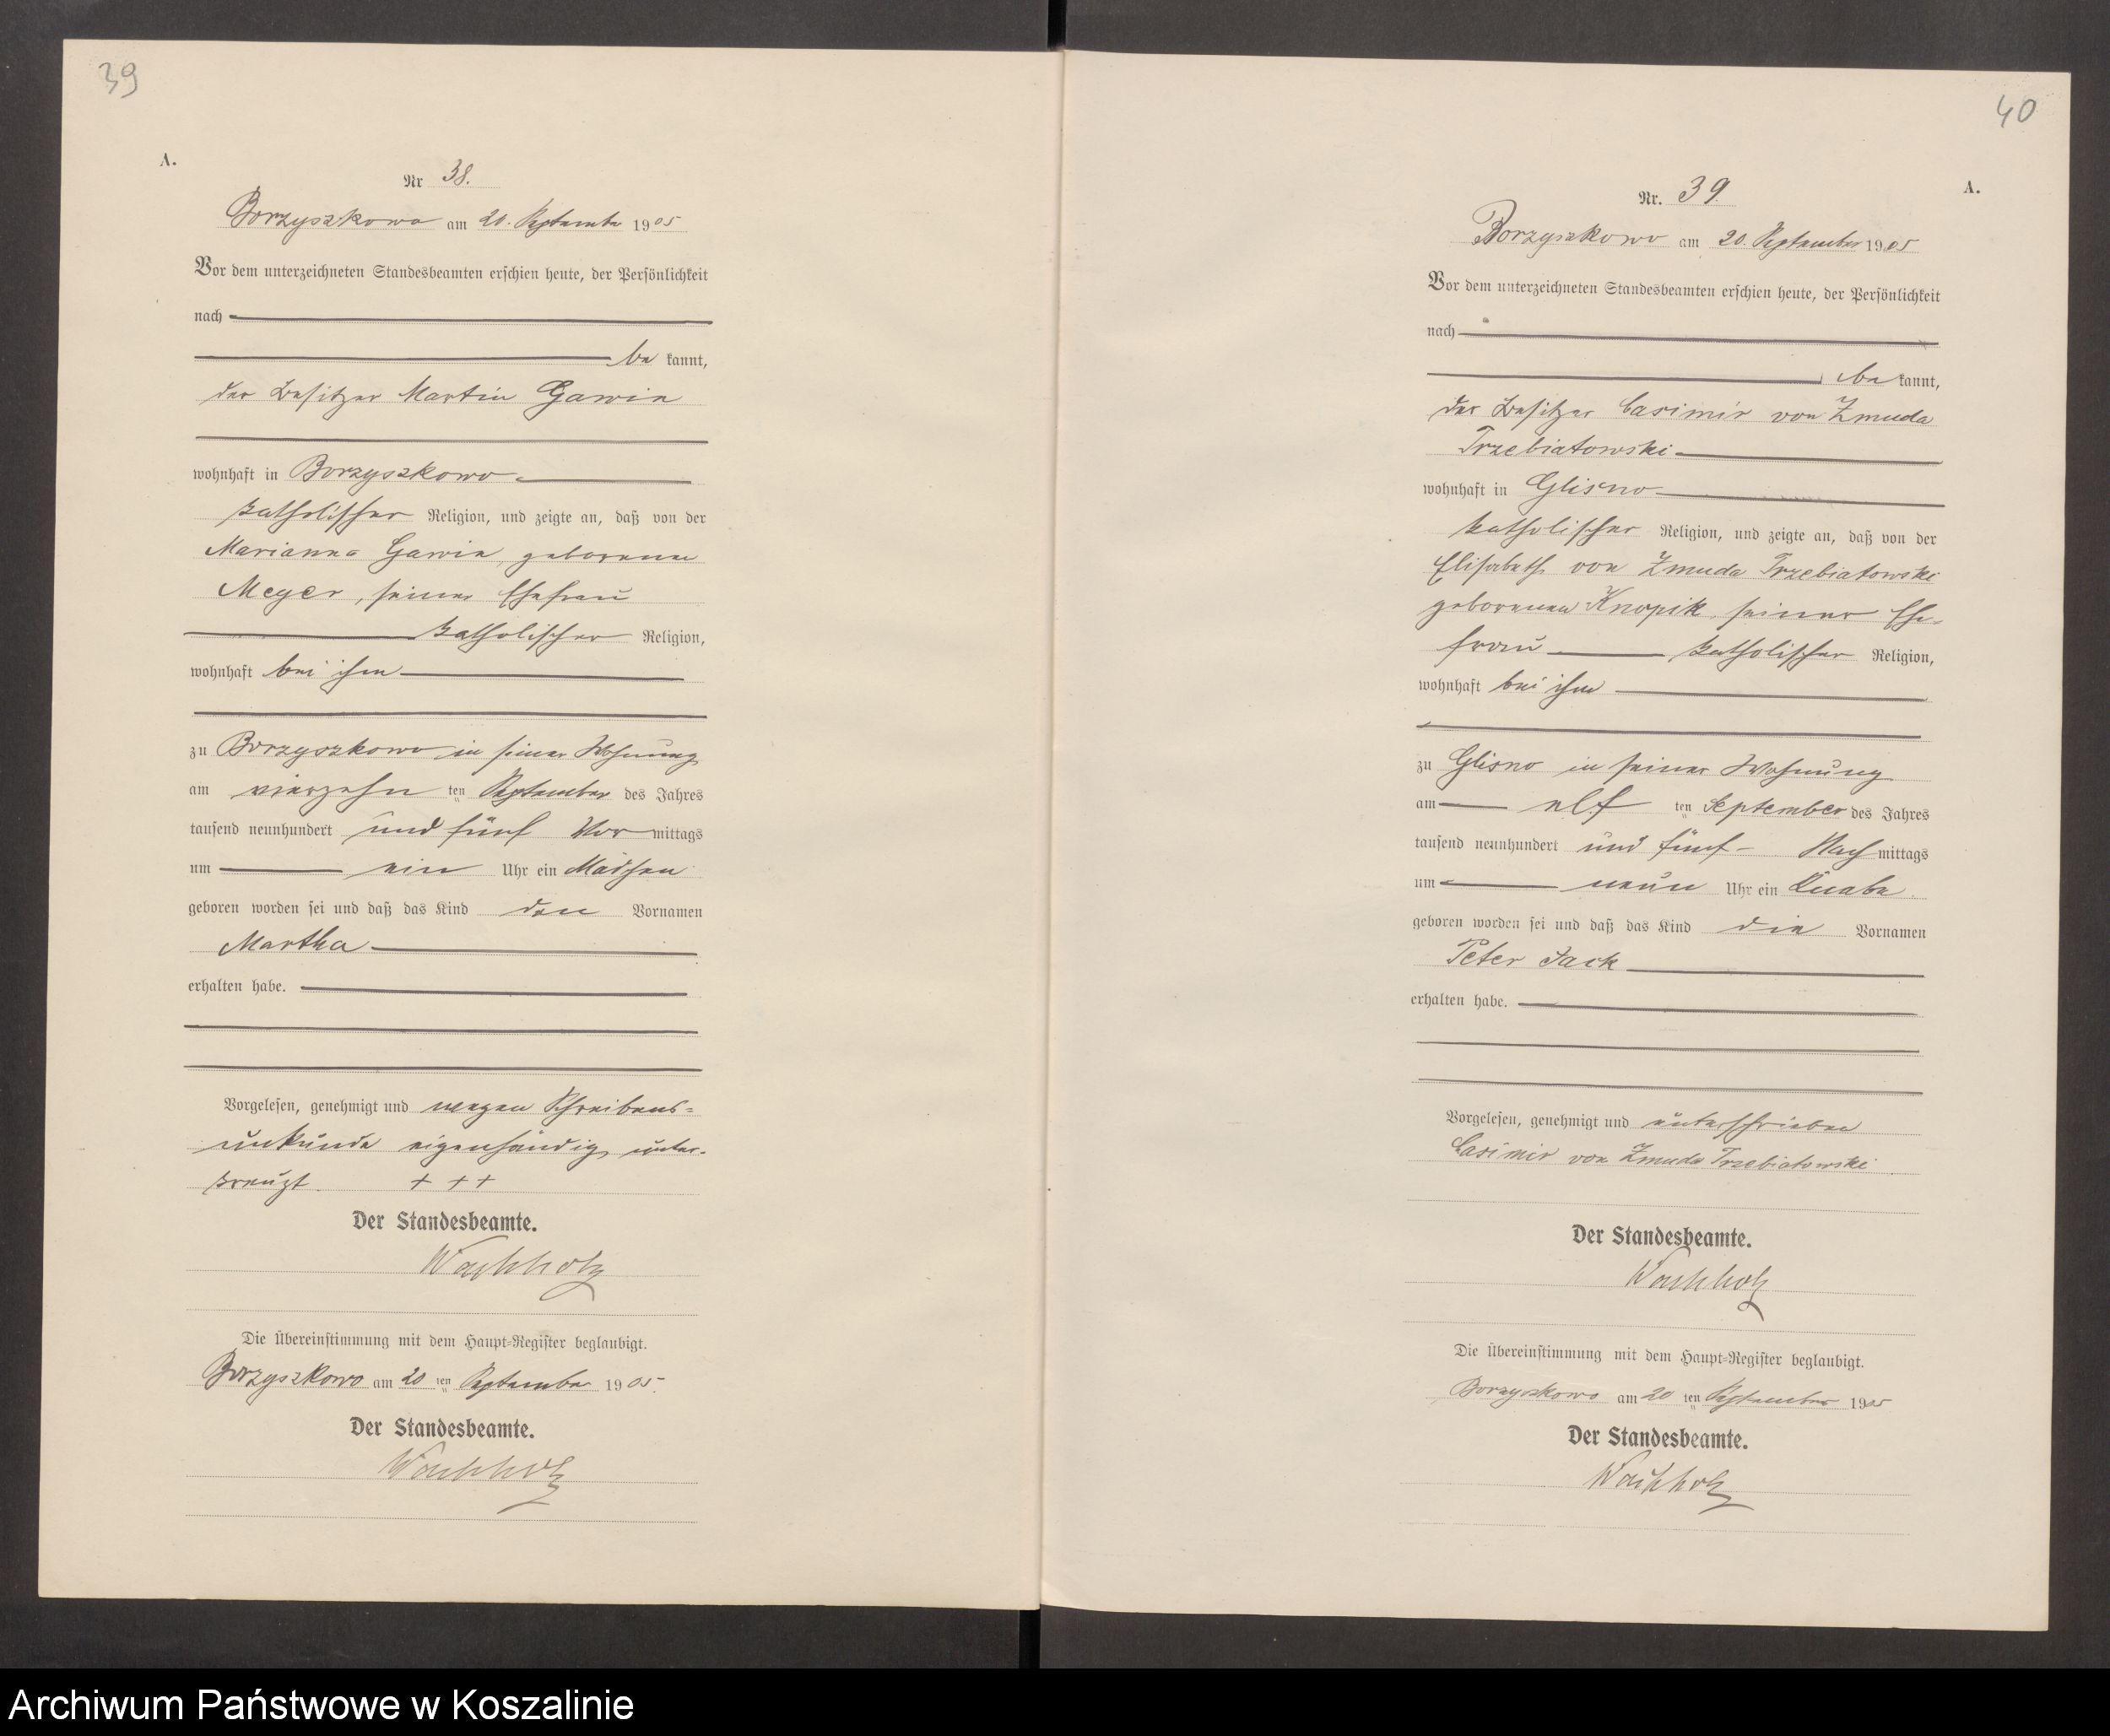 39
A.
Nr 38.
Borzyszkowo am 20. September 1905
Vor dem unterzeichneten Standesbeamten erschien heute, der Persönlichkeit
nach
be kannt,
der Besitzer Martin Gawin
wohnhaft in Borzyszkowo
katholischer Religion, und zeigte an, daß von der
Marianna Gawin, geborenen
Meyer, seiner Ehefrau
katholischer Religion,
wohnhaft bei ihm
zu Borzyszkowo in seiner Wohnung
am vierzehn ten September des Jahres
tausend neunhundert und fünf Vor mittags
um ein Uhr ein Mädchen
geboren worden sei und daß das Kind den Vornamen
Martha
erhalten habe.
Vorgelesen, genehmigt und wegen Schreibens-
unkunde eigenhändig unter-
kreuzt. + + +
Der Standesbeamte.
Wachholz
Die Übereinstimmung mit dem Haupt-Register beglaubigt.
Borzyszkowo am 20 ten September 1905.
Der Standesbeamte.
Wachholz
40
A.
Nr. 39.
Borzyszkowo am 20. September 1905
Vor dem unterzeichneten Standesbeamten erschien heute, der Persönlichkeit
nach
be kannt,
der Besitzer Casimir von Zmuda
Trzebiatowski
wohnhaft in Glisno
katholischer Religion, und zeigte an, daß von der
Elisabeth von Zmuda Trzebiatowski
geborenen Knopik, seiner Ehe-
frau katholischer Religion,
wohnhaft bei ihm
zu Glisno in seiner Wohnung
am elf ten September des Jahres
tausend neunhundert und fünf Nach mittags
um neun Uhr ein Knabe
geboren worden sei und daß das Kind die Vornamen
Peter Jack
erhalten habe.
Vorgelesen, genehmigt und unterschrieben
Casimir von Zmuda Trzebiatowski
Der Standesbeamte.
Wachholz
Die Übereinstimmung mit dem Haupt-Register beglaubigt.
Borzyszkowo am 20 ten September 1905
Der Standesbeamte.
Wachholz
Archiwum Państwowe w Koszalinie